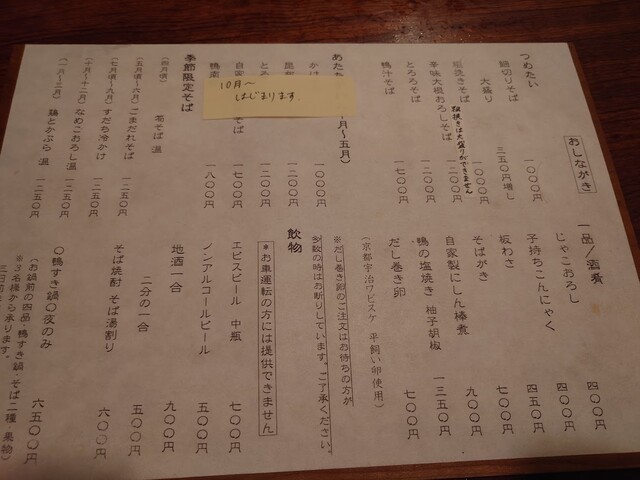 おしながき
つめたい
細切りそば 一〇〇〇円
大盛り 三五〇円増し
粗挽きそば 一〇〇〇円
粗挽きは大盛りができません
辛味大根おろしそば 一二〇〇円
とろろそば 一二〇〇円
鴨汁そば 一七〇〇円
あたた 月～五月)
かけ 一〇〇〇円
昆布 一二〇〇円
とろ 一二〇〇円
自家 そば 一七〇〇円
鴨南 一八〇〇円
10月～
はじまります。
季節限定そば
(四月頃) 若そば 温
(五月頃～六月) ごまだれそば 一二五〇円
(七月頃～九月) すだち冷かけ 一二五〇円
(十月～十二月) なめこおろし 温 一二五〇円
(一月～三月) 鶏とかぶら 温 一二五〇円
一品/酒肴
じゃこおろし 四〇〇円
子持ちこんにゃく 四〇〇円
板わさ 四五〇円
そばがき 七〇〇円
自家製にしん棒煮 九〇〇円
鴨の塩焼き 柚子胡椒 一三五〇円
だし巻き卵 七〇〇円
(京都宇治ワビスケ 平飼い卵使用)
※だし巻き卵のご注文はお待ちの方が
多数の時はお断りしています。ご了承ください。
飲物
*お車運転の方には提供できません
エビスビール 中瓶 七〇〇円
ノンアルコールビール 五〇〇円
地酒一合 九〇〇円
二分の一合 五〇〇円
そば焼酎 そば湯割り 六〇〇円
〇鴨すき鍋〇夜のみ 六五〇〇円
(お鍋前の四品・鴨すき鍋・そば二種・果物)
※3名様から承ります。